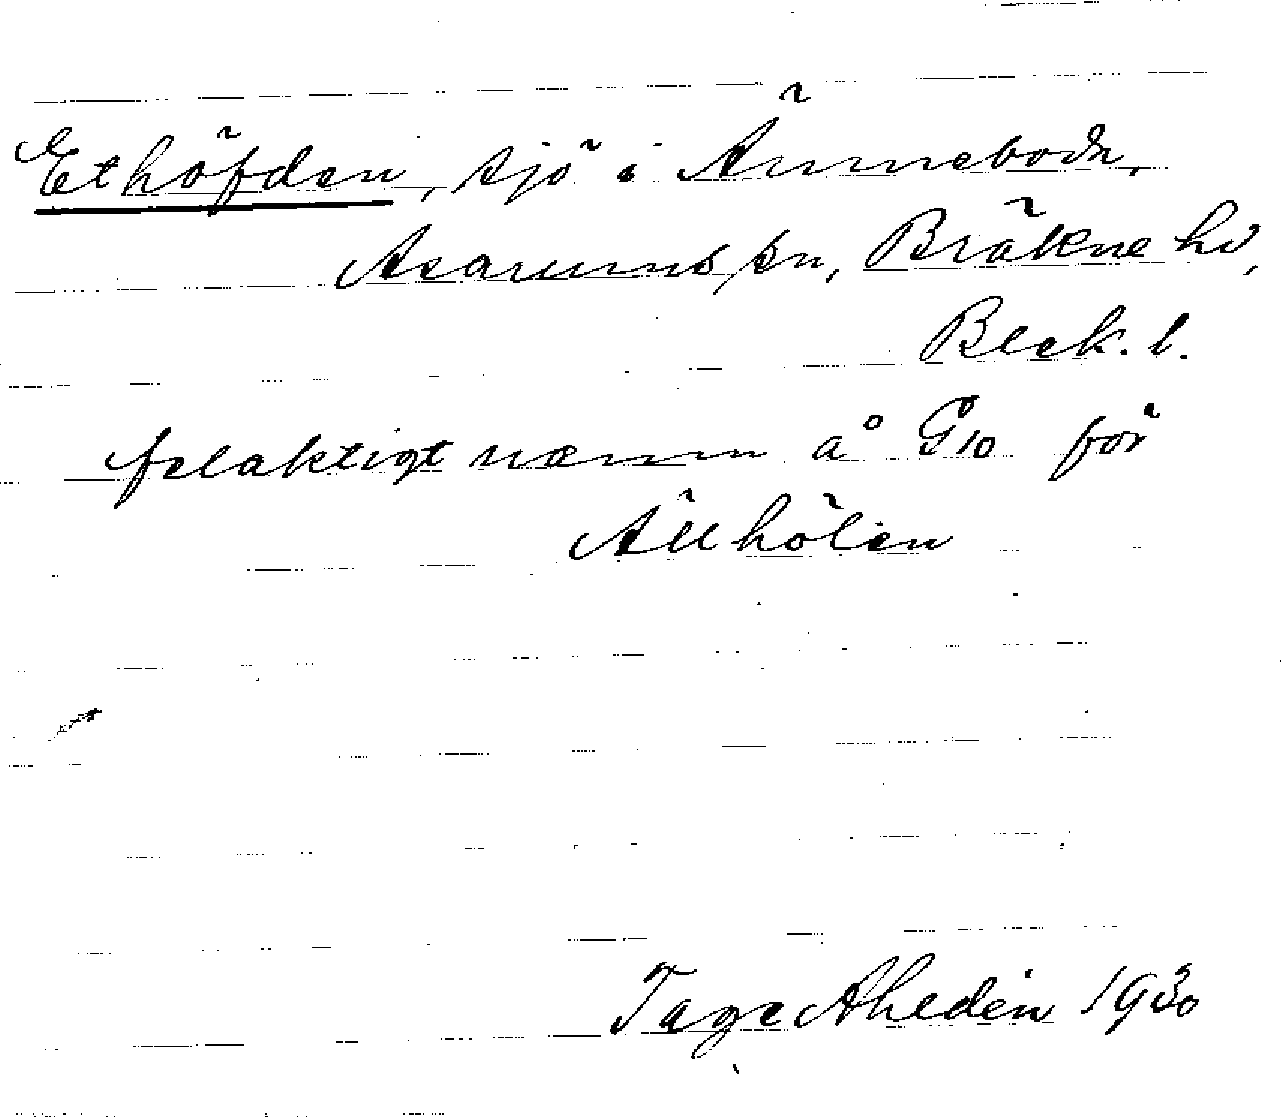 Ethöfden, sjö i Änneboda,
Asarums sn, Bräkne hd,
Blek. l.
felaktigt namn å G10 för
Ällhölen
Tage Ahldén 1930